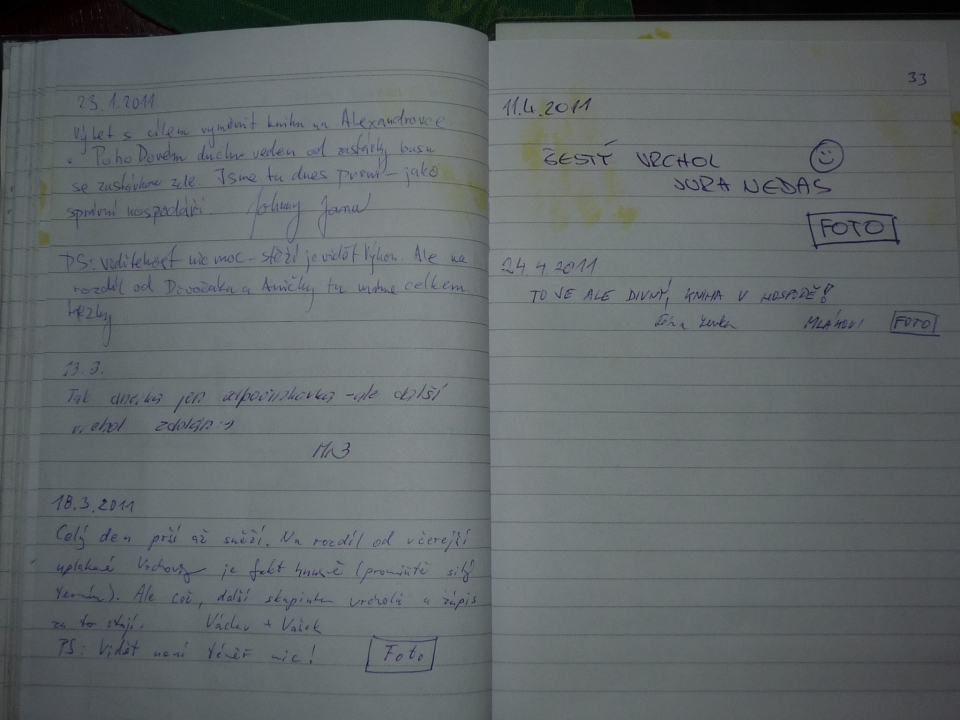 23.1.2011
Výlet s cílem vyměnit knihu na Alexandrovce
v PohoDovém duchu veden od zastávky busu
se zastávkou zde. Jsme tu dnes první – jako
správní hospodáři. Johnny Jana
PS: viditelnost nic moc – stěží je vidět Výhon. Ale na
rozdíl od Dvořáka a Aničky tu máme celkem
hezky
13.3.
Tak dneska jen odpočinkovka – ale další
vrchol zdolán :-)
18.3.2011
Celý den prší až sněží. Na rozdíl od včerejší
uplakané Vrchoviny je fakt hnusně (promiňte silý
termín). Ale což, další skupinka vrcholů a zápis
za to stojí. Václav + Vašek
PS: Vidět není téměř nic! Foto
33
11.4.2011
ŠESTÝ VRCHOL
JURA NEDAS
FOTO
24.4.2011
TO JE ALE DIVNÝ, KNIHA V HOSPODĚ!
Lenka FOTO